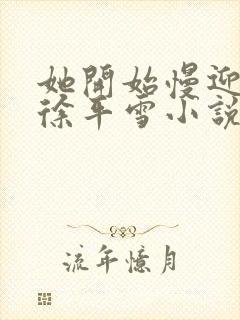 她開始慢迎
徐年雪小説
流年憶月